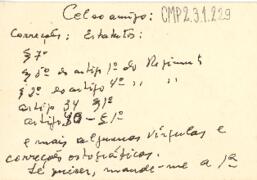 Celso amigo: CMP2.3.1.229
Correções: Estatutos:
§ 7º
§ 5º do artigo 1º do Regimento
§ 2º do artigo 4º " "
artigo 34 § 1º
artigo 90 - § 1º
e mais algumas vírgulas e
correções ortográficas.
Se quiser, mande-me a 1ª